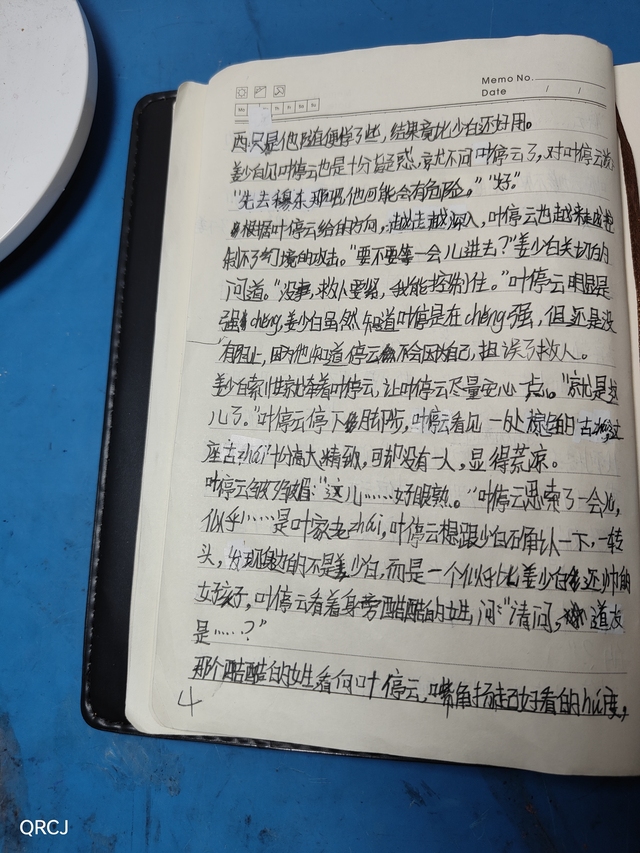 Memo No.
Date / /
西,只是他随便学了些,结果竟比少白还好用。
姜少白见叶停云也是十分疑惑,就不问叶停云了,对叶停云道:
"先去穆东那吧,他可能会有危险。""好。"
根据叶停云给的方向,越走越深入,叶停云也越来越控
制不了幻境的攻击。"要不要等一会儿进去?"姜少白关切的
问道。"没事,救人要紧,我能控制住。"叶停云明显是
强chěng,姜少白虽然知道叶停是在chěng强,但还是没
有阻止,因为他知道停云不会因为自己,担误了救人。
姜少白索性就牵着叶停云,让叶停云尽量安心一点。"就是这
儿了。"叶停云停下脚步,叶停云看见一处棕色的古
座古zhái十分高大精致,可却没有一人,显得荒凉。
叶停云皱了皱眉:"这儿……好眼熟。"叶停云思索了一会儿,
似乎……是叶家老zhái,叶停云想跟少白确认一下,一转
头,发现身边的不是姜少白,而是一个似乎比姜少白还帅的
女孩子,叶停云看着身旁酷酷的女生,问:"请问,道友
是……?"
那个酷酷的女生看向叶停云,嘴角扬起好看的hú度,
4
QRCJ